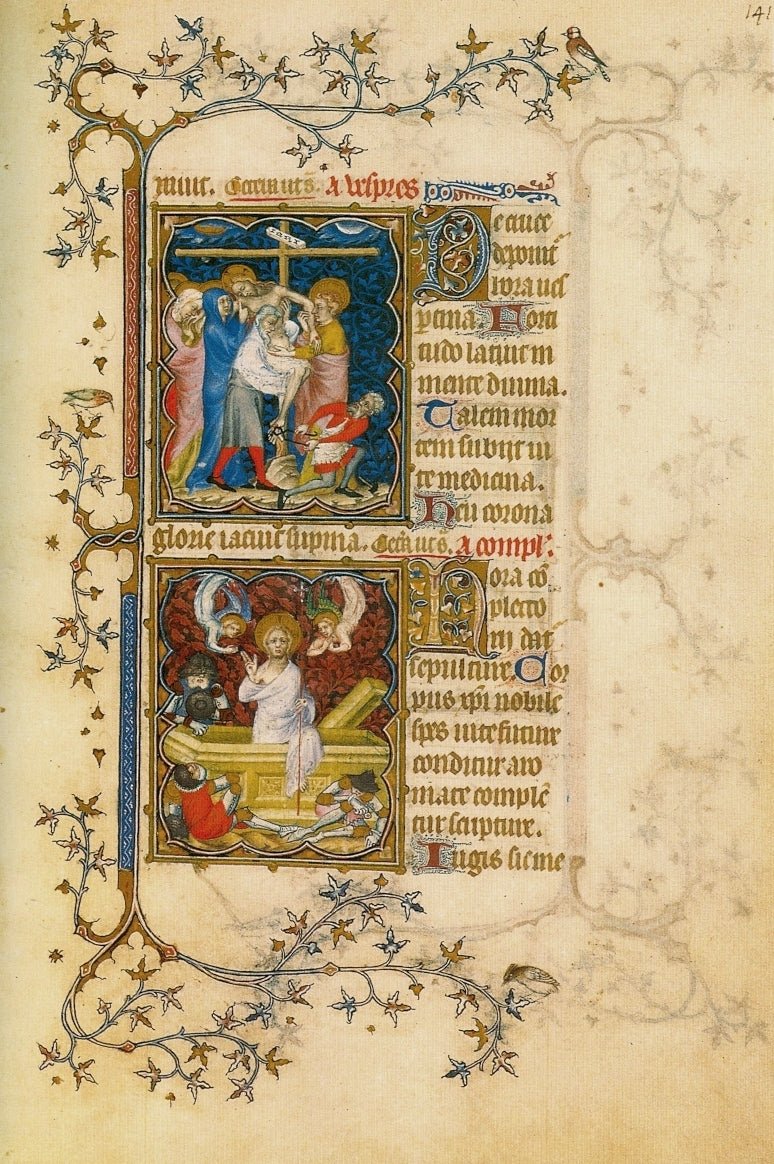 141
A vespres
De cruce
deponit̄
hora ves
ꝑtina. Forti
tudo latuit in
mente diuina.
Talem mor
tem subiit ui
te medicina.
Heu corona
glorie iacuit supina. A compl'.
Hora cō
pleto
rii dat̄
sepulture. Cor
pus xp̄i nobile
spes uite future
conditur aro
mate complē
tur scripture.
Iugis sit me